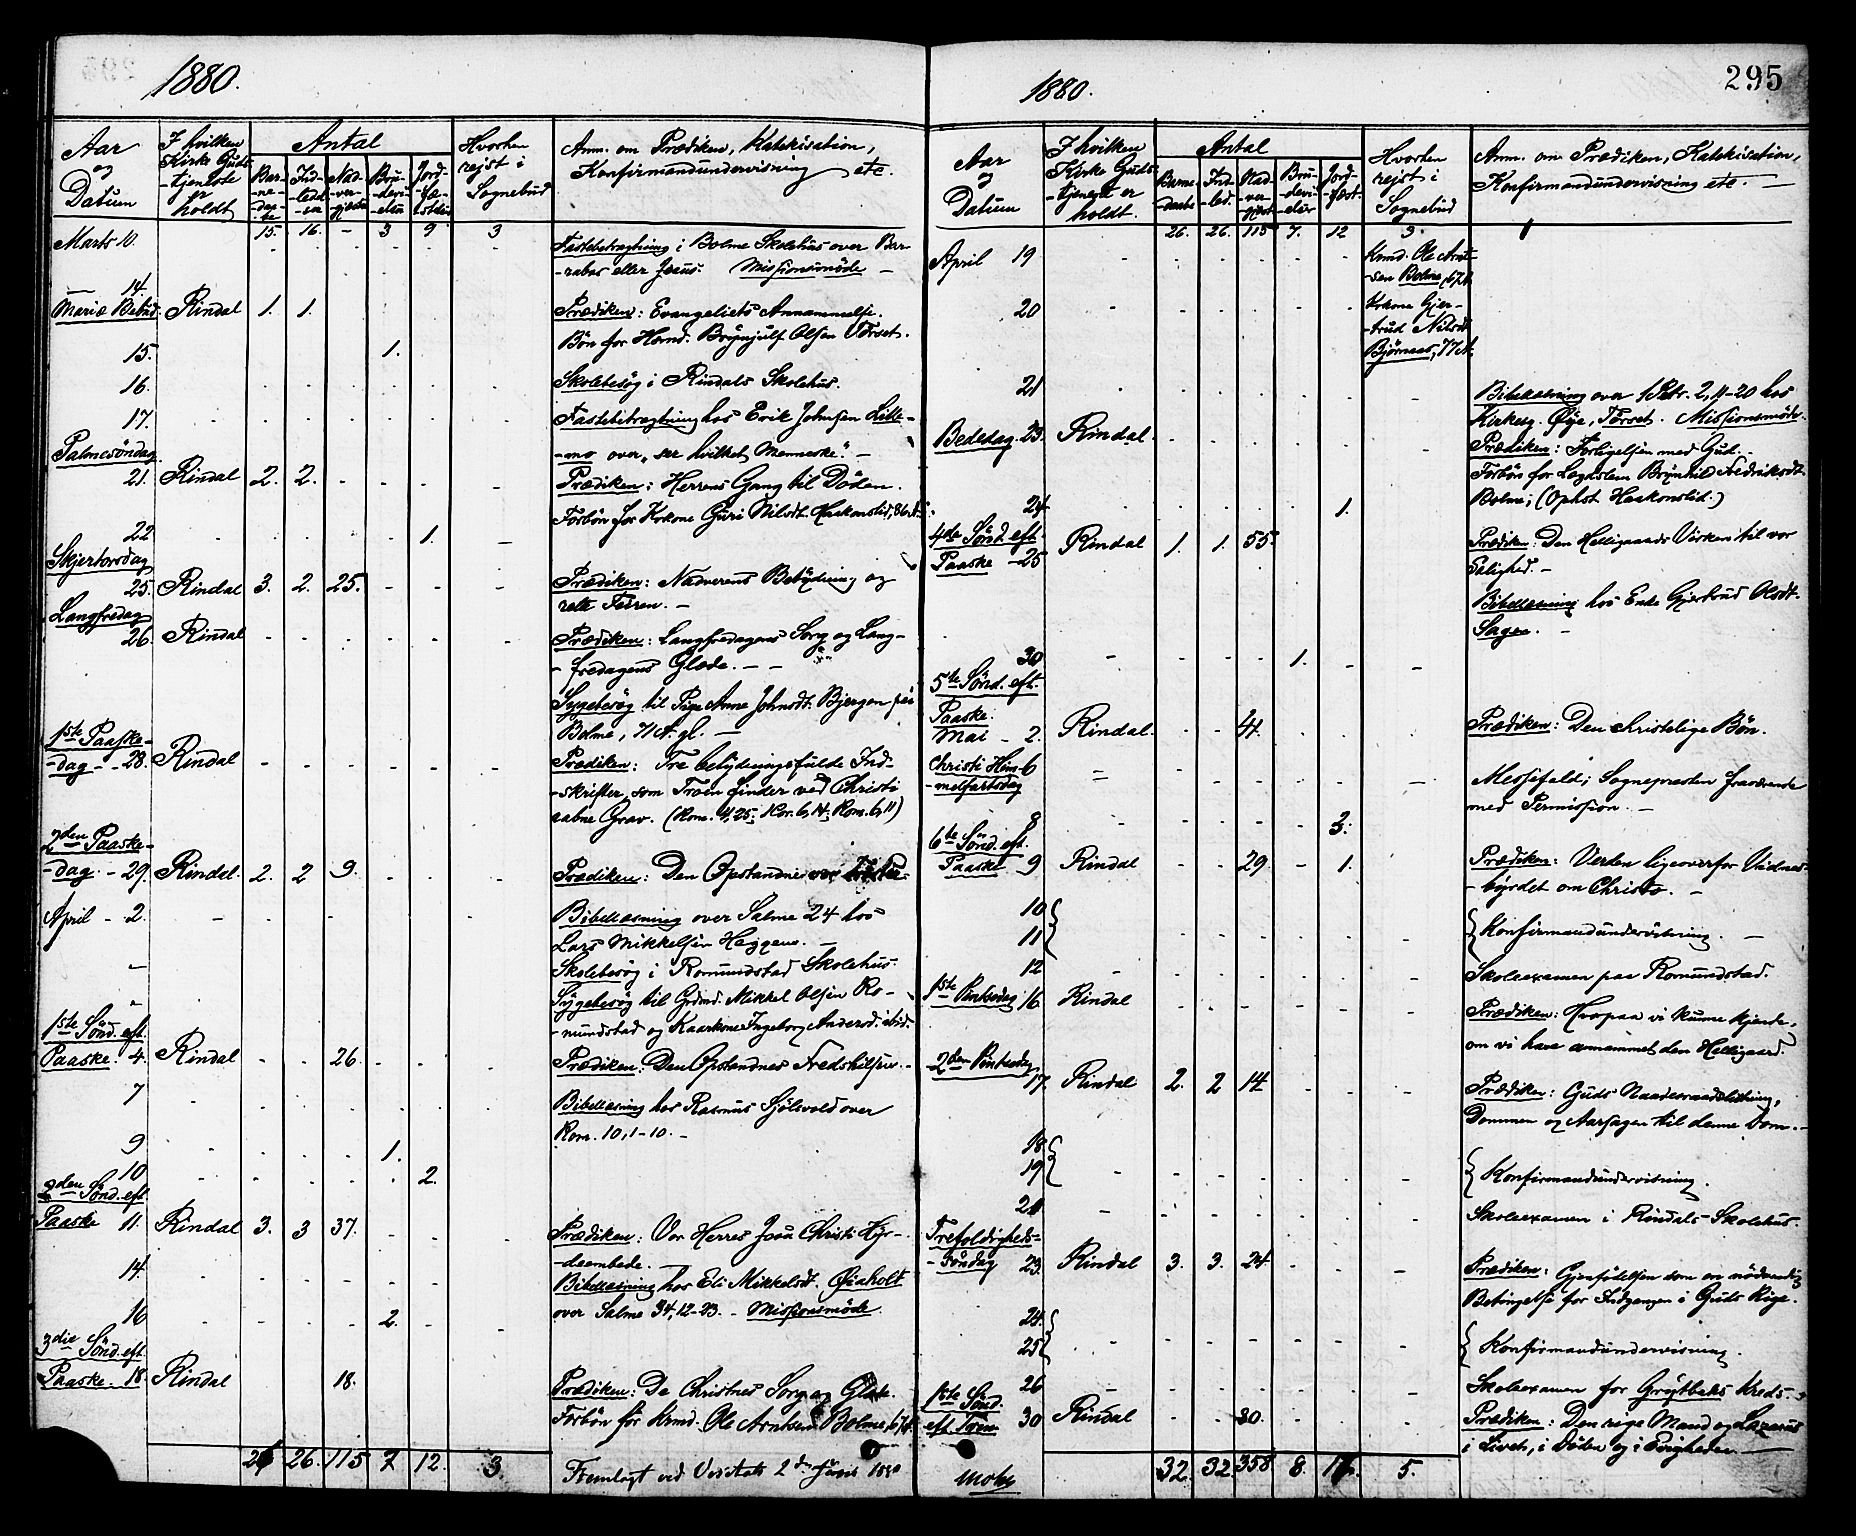 1880.
Aar og Datum | I hvilken Kirke Guds-tjeneste er holdt | Antal | Hvorhen rejst i Sognebud | Anm. om Prædiken, Katekisation, Konfirmandundervisning etc.
Bar-ne-daabe | Ind-ledd-er | Nad-ver-gjæster | Bru-devi-elser | Jord-fæ-stelser
15. 16. - 3 9. 3
Marts 10. Fastebetragtning i Bolme Skolehus over Bar-
-rabas eller Jesus. Missionsmöde -
14.
Mariæ Bebud. Rindal 1. 1. Prædiken: Evangeliets Annammelse.
Bön for Hbmd. Brynjulf Olsen Törset.
15. 1.
16. Skolebesög i Rindals Skolehus.
17. Fastebetragtning hos Erik Johnsen Lille-
-mo over „se hvilket Menneske". -
Palmesöndag
21. Rindal 2. 2. Prædiken: Herrens Gang til Döden.
Forbön for Krkone Guri Nilsdt. Haakonslid, 86 A.
22 1.
Skjertorsdag
25. Rindal 3. 2. 25. Prædiken: Nadverens Betydning og
rette Feiren. -
Langfredag
26. Rindal Prædiken: Langfredagens Sorg og Lang-
-fredagens Glæde. - -
Sygebesög til Pige Anne Johnsdt. Bjergen paa
Bolme, 71 A. gl. -
1ste Paaske-
-dag - 28. Rindal Prædiken: Tre betydningsfulde Ind-
-skrifter, som Troen finder ved Christi
aabne Grav. (Rom. 4,25; 1 Cor. 6,14; Rom. 6,11)
2den Paaske-
-dag - 29. Rindal. 2. 2 9. Prædiken: Den Opstandne
April - 2. Bibellæsning over Salme 24 hos
Lars Mikkelsen Heggem. -
- Skolebesög i Romundstad Skolehus.
- Sygebesög til Grdmd. Mikkel Olsen Ro-
-mundstad og Kaarkone Ingeborg Andersd. ibid.
1ste Sönd. eft.
Paaske. 4. Rindal 26. Prædiken: Den Opstandnes Fredshilsen. -
7 Bibellæsning hos Rasmus Sjölsvold over
Rom. 10, 1-10. -
9 1.
10 2.
2den Sönd. eft.
Paaske 11. Rindal 3. 3 37. Prædiken: Vor Herres Jesu Christi Hyr-
-deembede.
14. Bibellæsning hos Eli Mikkelsdt. Öiaholt
over Salme 34, 12-23. - Missionsmöde.
16 2.
3die Sönd. eft.
Paaske. 18. Rindal 18. Prædiken: De Christnes Sorg og Glæde.
Forbön for Krmd. Ole Arntsen Bolme, 67 A.
26 26. 115 7 12. 3 Fremlagt ved Visitats 2de Juni 1880
1880. 295
Aar og Datum | I hvilken Kirke Guds-tjenest er holdt. | Antal | Hvorhen rejst i Sognebud | Anm. om Prædiken, Katekisation, Konfirmandundervisning etc. -
Barne-daabe | Ind-led. | Nad-ver-gjæst | Bru-devi-elser | Jord-fæst.
26. 26. 115 7. 12 3.
April 19 Krmd. Ole Arnt-
-sen Bolme, 67 A.
20 Krkone Gjer-
-trud Nilsdt
Bjørnaas, 77 A.
21 Bibellæsning over 1 Petr. 2, 11-20 hos
Kirkesg. Øye, Törset. Missionsmöde.
Bededag. 23. Rindal. Prædiken: Forligelsen med Gud. -
Forbön for Lægdslem Brynhild Fredriksdt.
Bolme, (Ophst. Haakonslid.)
24 1.
4de Sönd. eft.
Paaske - 25 Rindal 1. 1. 55. Prædiken: Den Helligaands Virken til vor
Salighed. -
Bibellæsning hos Enke Gjertrud Olsdt.
Sagen. -
30 1.
5te Sönd. eft.
Paaske.
Mai - 2. Rindal. 41. Prædiken: Den christelige Bön.
Christi Him- 6
-melfartsdag Messefald; Sognepræsten fraværende
med Permission. -
8 3.
6te Sönd. eft.
Paaske 9 Rindal 29. 1. Prædiken: Verden ligeoverfor Vidnes-
-byrdet om Christo. -
10
11 Konfirmandundervisning. -
12 Skoleexamen paa Romundstad.
1ste Pintsedag 16 Rindal Prædiken: Hvorpaa vi kunne kjende,
om vi have annammet den Helligaand.
2den Pintsedag
17. Rindal 2. 2 14 Prædiken: Guds Naadesraadslutning,
Dommen og Aarsagen til denne Dom. -
18
19 Konfirmandundervisning.
20 Skoleexamen i Rindals-Skolehus.
Trefoldigheds-
-söndag 23. Rindal 3. 3. 24 Prædiken: Gjenfödelsen som en nödvendig
Betingelse for Indgangen i Guds Rige.
24
25 Konfirmandundervisning.
26 Skoleexamen for Grøtbæks Kreds.
1ste Sönd.
eft. Trin. 30 Rindal 30. Prædiken: Den rige Mand og Lazarus
i Livet, i Döden og i Evigheden -
32. 32. 358 8. 17. 5.